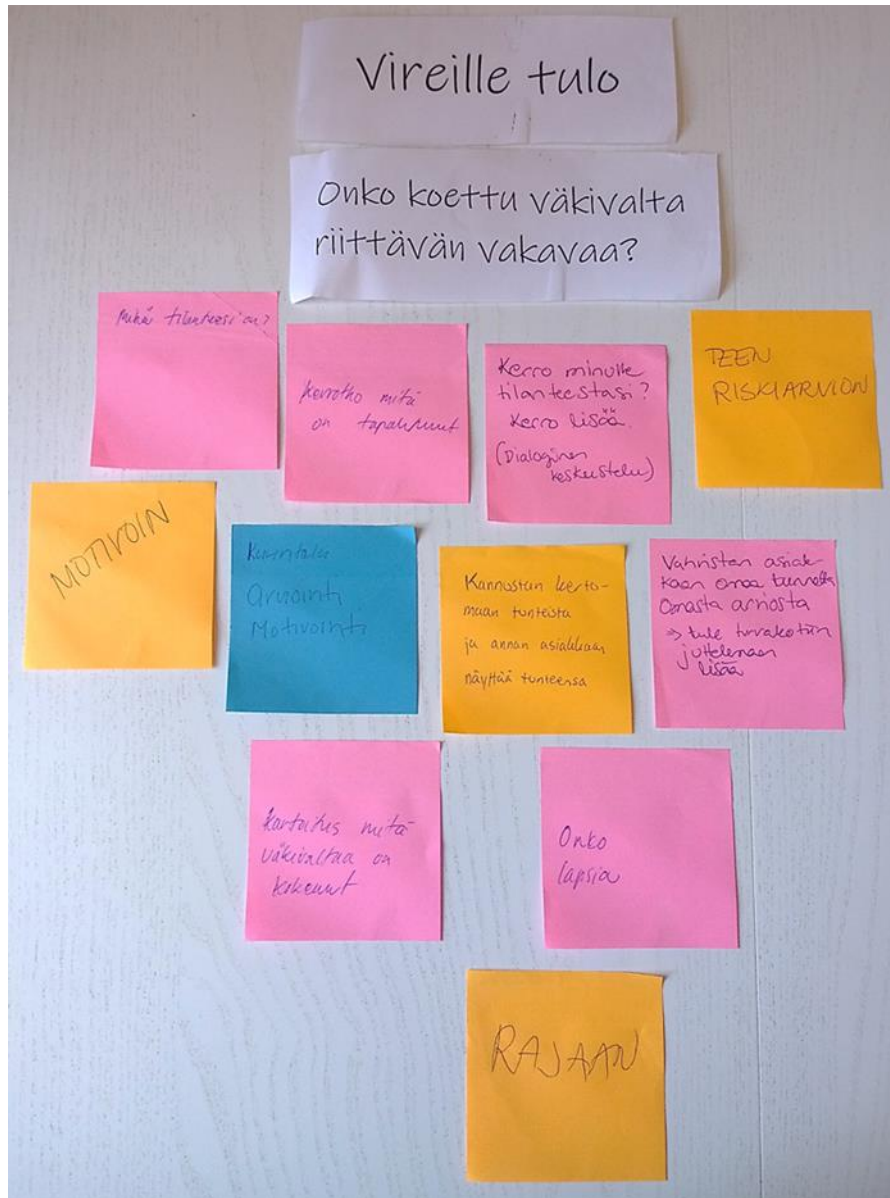 Vireille tulo
Onko koettu väkivalta
riittävän vakavaa?
Mikä tilanteesi on?
Kerrotko mitä
on tapahtunut
Kerro minulle
tilanteestasi?
Kerro lisää.
(Dialoginen
keskustelu)
TEEN
RISKIARVION
MOTIVOIN
Kuuntelu
Arviointi
Motivointi
Kannustan kerto-
maan tunteista
ja annan asiakkaan
näyttää tunteensa
Vahvistan asiak-
kaan omaa tunnetta
Omasta arvosta
⇒ tule turvakotiin
juttelemaan
lisää
Kartoitus mitä
väkivaltaa on
kokenut
Onko
lapsia
RAJAAN